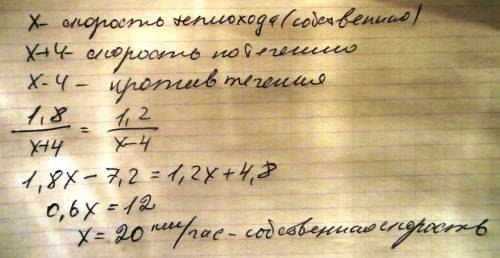 X- скорость теплохода (собственно)
X+4- скорость по течению
X-4 - против течения
1,8/x+4 = 1,2/x-4
1,8x-7,2=1,2x+4,8
0,6x=12
x=20 км/час - собственная скорость